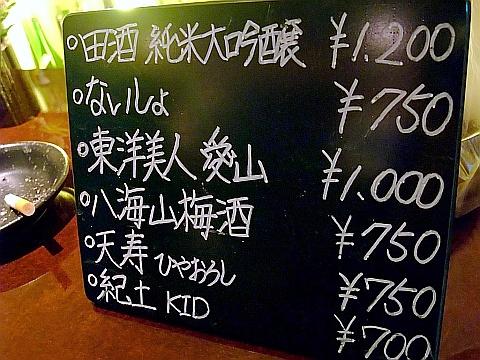 ○田酒 純米大吟醸 ¥1.200
○ないしょ ¥750
○東洋美人 愛山 ¥1.000
○八海山梅酒 ¥750
○天寿 ひやおろし ¥750
○紀土 KID ¥700